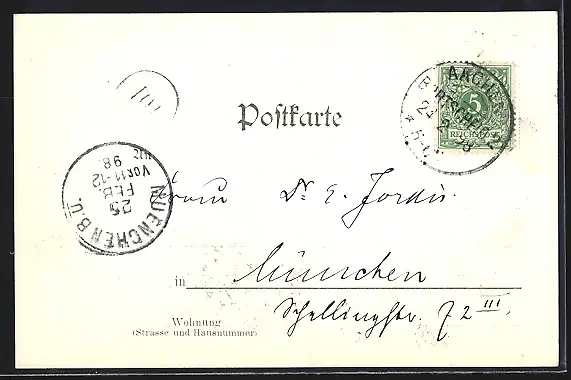 Postkarte
AACHEN
5
REICHSPOST
MUENCHEN B.O.
25
FEB
VOR 11-12
98
Dr. E. Jordis
in München
Schellingstr. 72 III
Wohnung
(Strasse und Hausnummer)